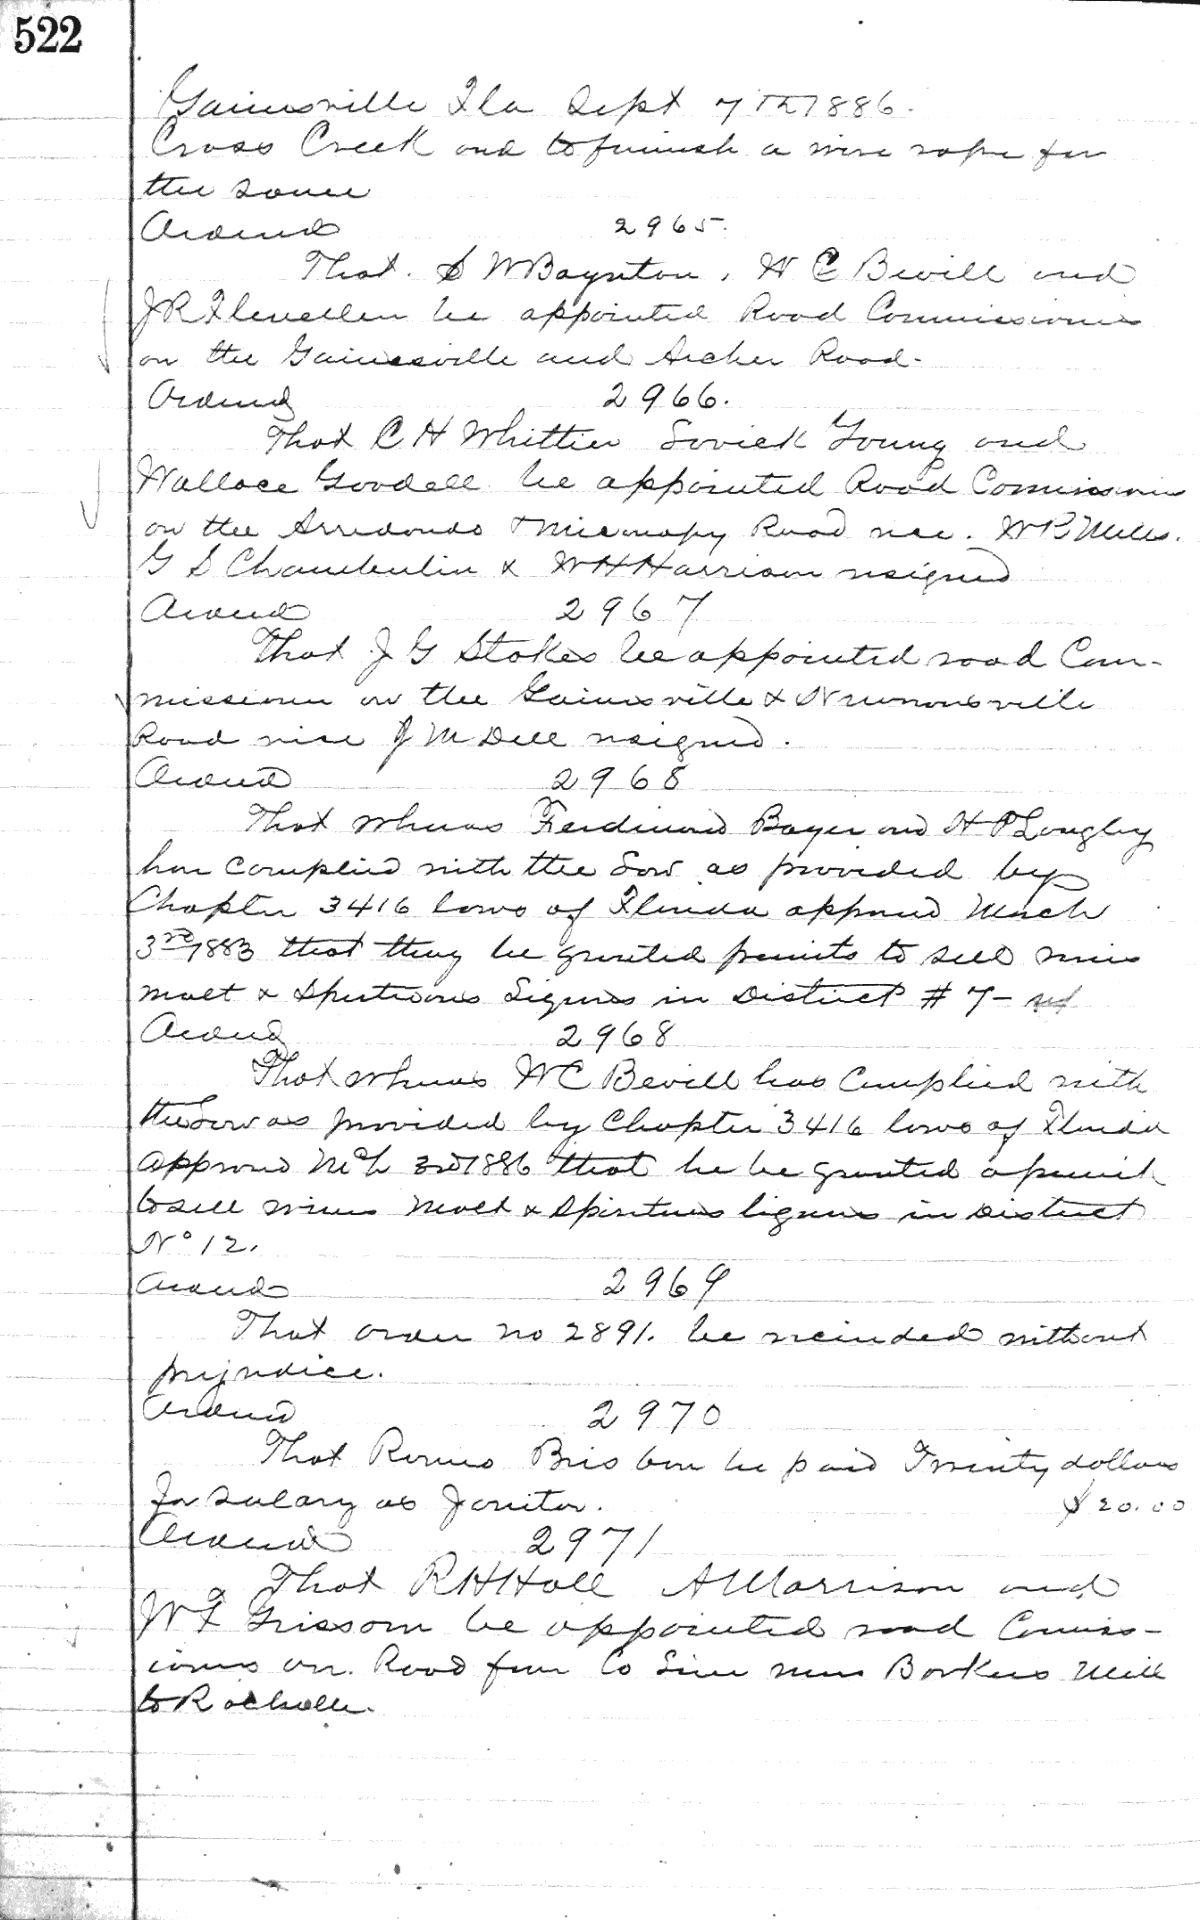 522
Gainesville Fla Sept 7th 1886.
Cross Creek and to furnish a wire rope for
the same
Ordered 2965.
That. S W Baynton, W C Bevill and
J R Flewellen be appointed Road Commissioners
on the Gainesville and Archer Road-
Ordered 2966.
That C H Whittier Young and
Wallace Goodell be appointed Road Commissioners
on the Arredondo & Micanopy Road vice. W B Mills.
G S Chamberlin & W H Harrison resigned
Ordered 2967
That J G Stokes be appointed road Com-
missioner on the Gainesville & Newnansville
Road vice J M Dell resigned.
Ordered 2968
That whereas Ferdinand Bayer and H P Longley
have complied with the Law as provided by
Chapter 3416 laws of Florida approved March
3rd 1883 that they be granted permits to sell wines
malt & Spirituous Liquors in District # 7-
Ordered 2968
That whereas W C Bevill has Complied with
the Law as provided by Chapter 3416 laws of Florida
approved Mch 3rd 1886 that he be granted a permit
to sell wines Malt & Spirituous liquors in District
No 12.
Ordered 2969
That order no 2891. be recinded without
prejudice.
Ordered 2970
That Romeo Brisbon be paid Twenty dollars
for salary as Janitor. $20.00
Ordered 2971
That R H Hall A Morrison and
W F Grissom be appointed road Comiss-
ioners on. Road from Co Line near Barkers Mill
to Rochelle.